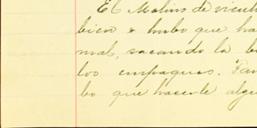 El Molino de vient
bien & hubo que ha
mal, sacando la b
los empaques. Par
bo que hacerle algu